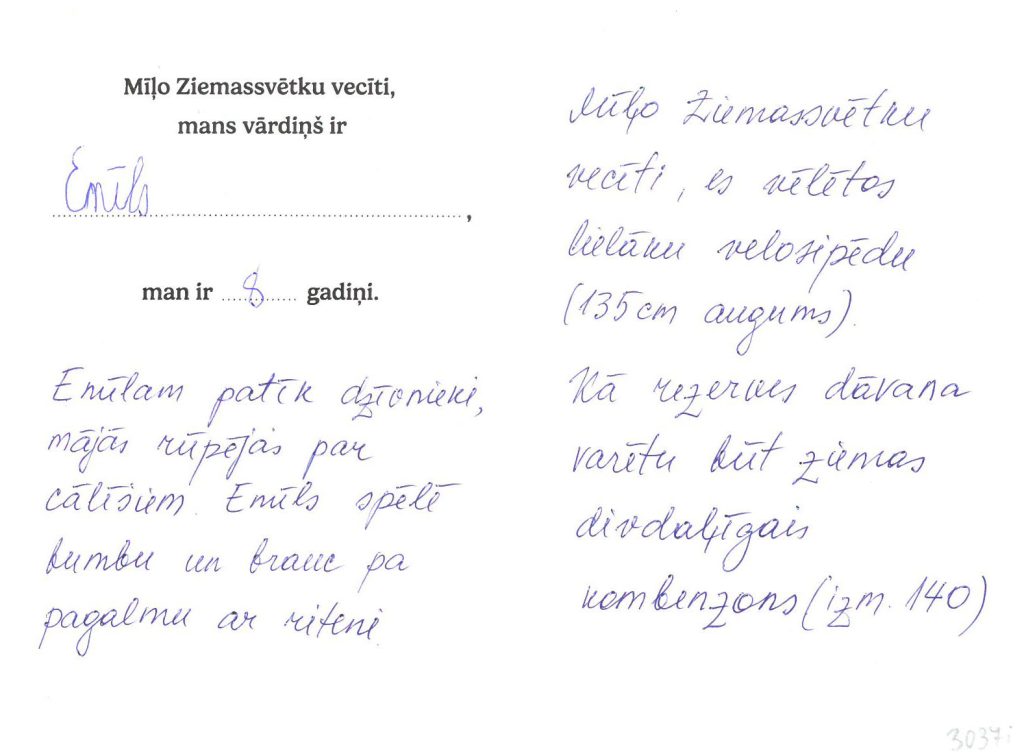 Mīļo Ziemassvētku vecīti,
mans vārdiņš ir
Emīls,
man ir 8 gadiņi.
Emīlam patīk dzīvnieki,
mājās rūpējās par
cālīšiem. Emīls spēlē
bumbu un brauc pa
pagalmu ar riteni.
Mīļo Ziemassvētku
vecīti, es vēlētos
lielāku velosipēdu
(135cm augums).
Kā rezerves dāvana
varētu būt ziemas
divdaļīgais
kombenzons (izm. 140)
3037i